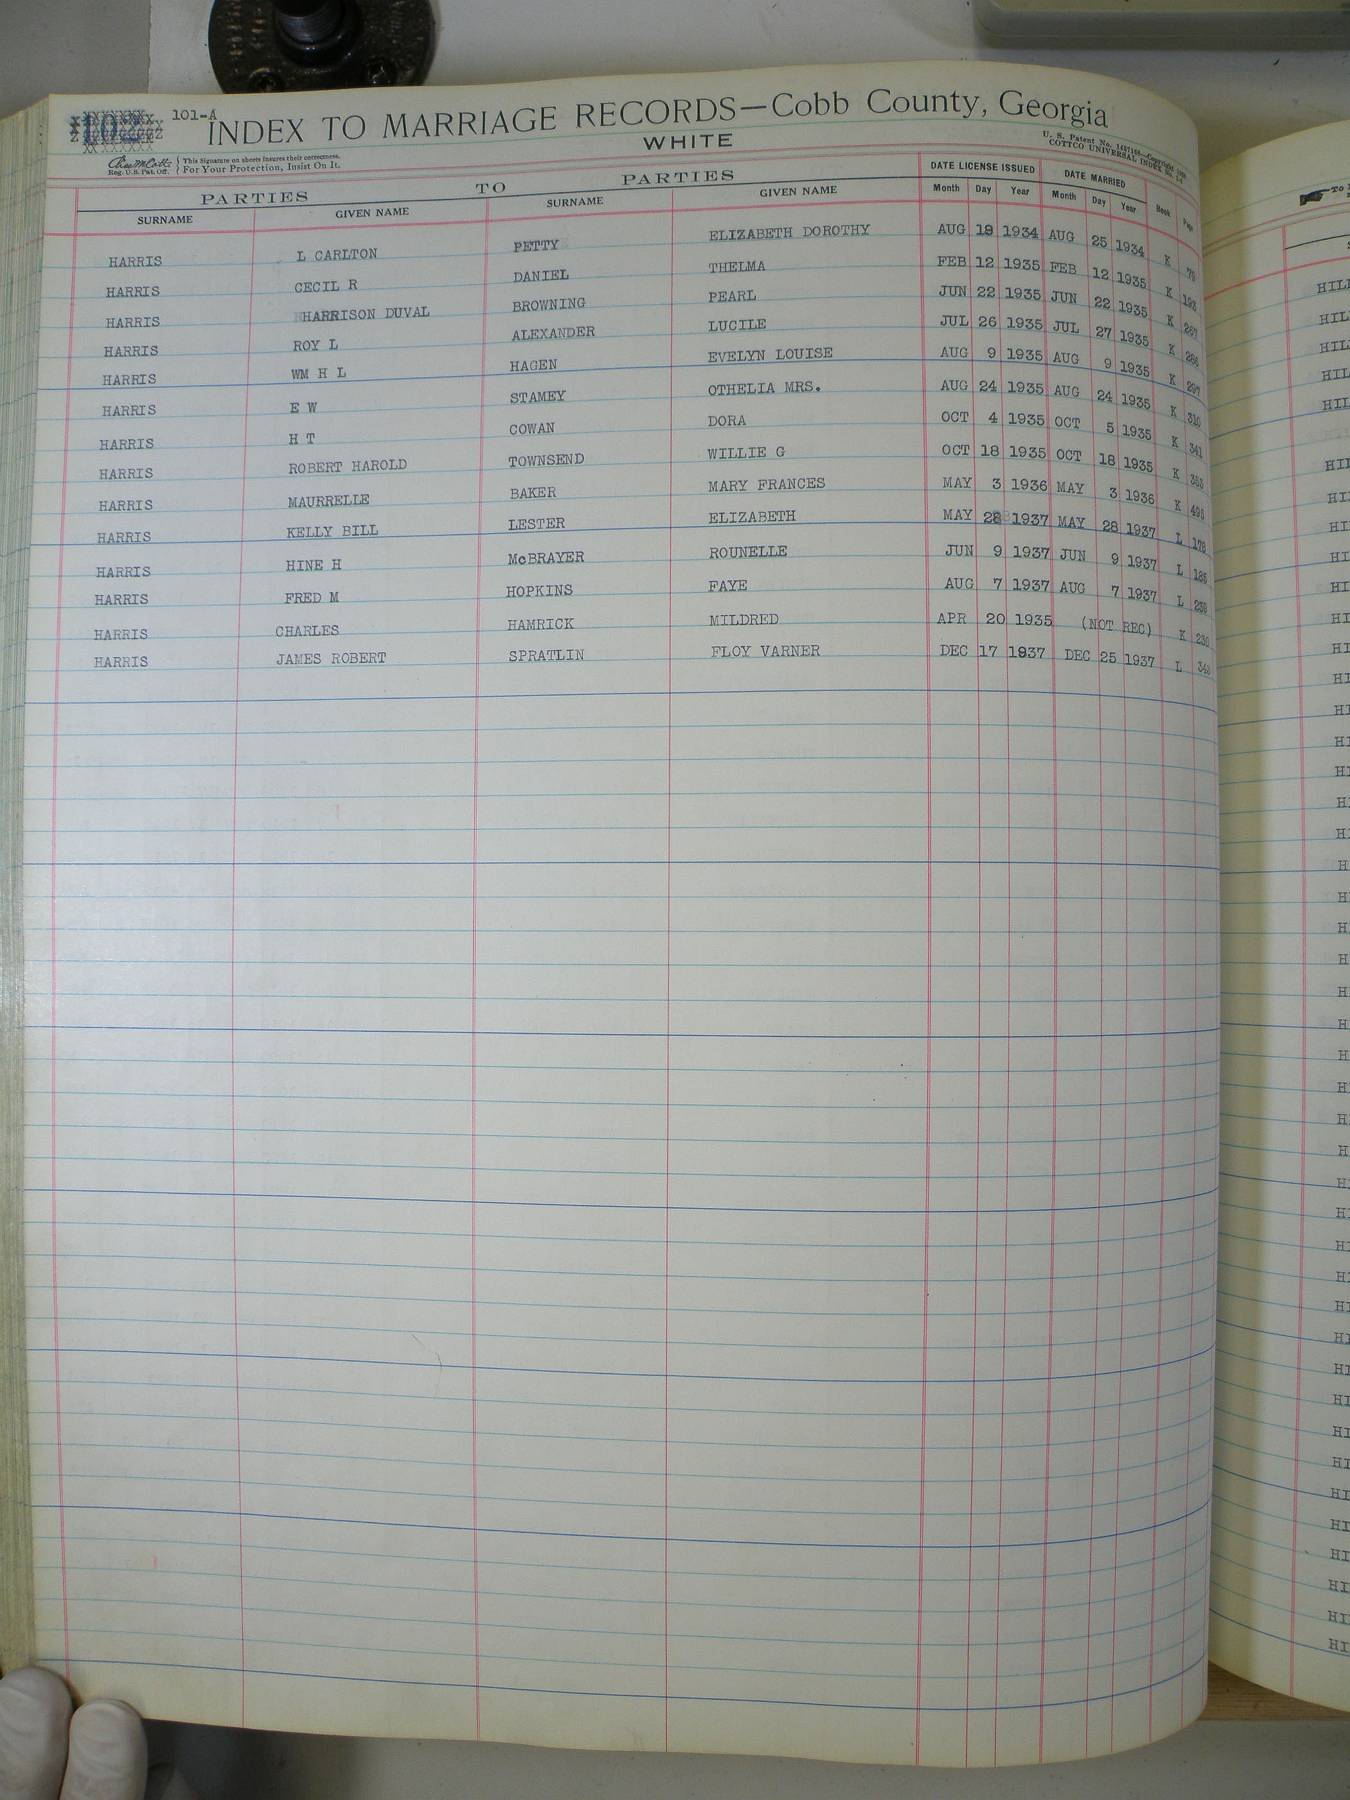 101-A
INDEX TO MARRIAGE RECORDS—Cobb County, Georgia
WHITE
This Signature on sheets insures their correctness.
Reg. U.S. Pat. Off. For Your Protection, Insist On It.
U. S. Patent No.
COTTCO UNIVERSAL INDEX
PARTIES TO PARTIES DATE LICENSE ISSUED DATE MARRIED
SURNAME GIVEN NAME SURNAME GIVEN NAME Month Day Year Month Day Year Book Page
HARRIS L CARLTON PETTY ELIZABETH DOROTHY AUG 18 1934 AUG 25 1934 K 79
HARRIS CECIL R DANIEL THELMA FEB 12 1935 FEB 12 1935 K 193
HARRIS HARRISON DUVAL BROWNING PEARL JUN 22 1935 JUN 22 1935 K 267
HARRIS ROY L ALEXANDER LUCILE JUL 26 1935 JUL 27 1935 K
HARRIS WM H L HAGEN EVELYN LOUISE AUG 9 1935 AUG 9 1935 K 297
HARRIS E W STAMEY OTHELIA MRS. AUG 24 1935 AUG 24 1935 K 310
HARRIS H T COWAN DORA OCT 4 1935 OCT 5 1935 K 341
HARRIS ROBERT HAROLD TOWNSEND WILLIE G OCT 18 1935 OCT 18 1935 K 353
HARRIS MAURRELLE BAKER MARY FRANCES MAY 3 1936 MAY 3 1936 K
HARRIS KELLY BILL LESTER ELIZABETH MAY 28 1937 MAY 28 1937 L 178
HARRIS HINE H McBRAYER ROUNELLE JUN 9 1937 JUN 9 1937 L
HARRIS FRED M HOPKINS FAYE AUG 7 1937 AUG 7 1937 L
HARRIS CHARLES HAMRICK MILDRED APR 20 1935 (NOT REC) K 230
HARRIS JAMES ROBERT SPRATLIN FLOY VARNER DEC 17 1937 DEC 25 1937 L